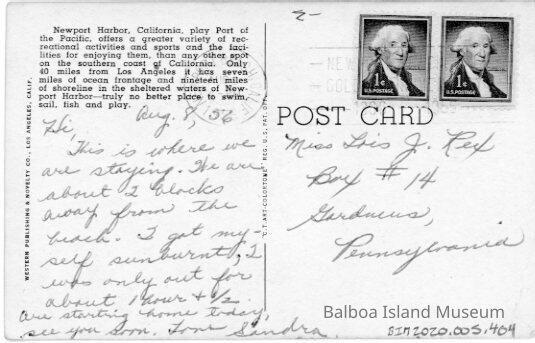 Newport Harbor, California, play Port of
the Pacific, offers a greater variety of rec-
reational activities and sports and the faci-
lities for enjoying them, than any other spot
on the southern coast of California. Only
40 miles from Los Angeles it has seven
miles of ocean frontage and nineteen miles
of shoreline in the sheltered waters of New-
port Harbor—truly no better place to swim,
sail, fish and play.
Aug. 8, 56
Hi,
This is where we
are staying. We are
about 2 blocks
away from the
beach. I got my-
self sunburnt, I
was only out for
about 1 hour + 1/2.
are starting home today,
see you soon. Love Sandra
WESTERN PUBLISHING & NOVELTY CO., LOS ANGELES, CALIF.
C.T. ART-COLORTONE REG. U.S. PAT. OFF.
1¢
U.S. POSTAGE
1¢
U.S. POSTAGE
POST CARD
Miss Lois J. Rex
Box # 14
Gardners,
Pennsylvania
Balboa Island Museum
BIM2020.005.404